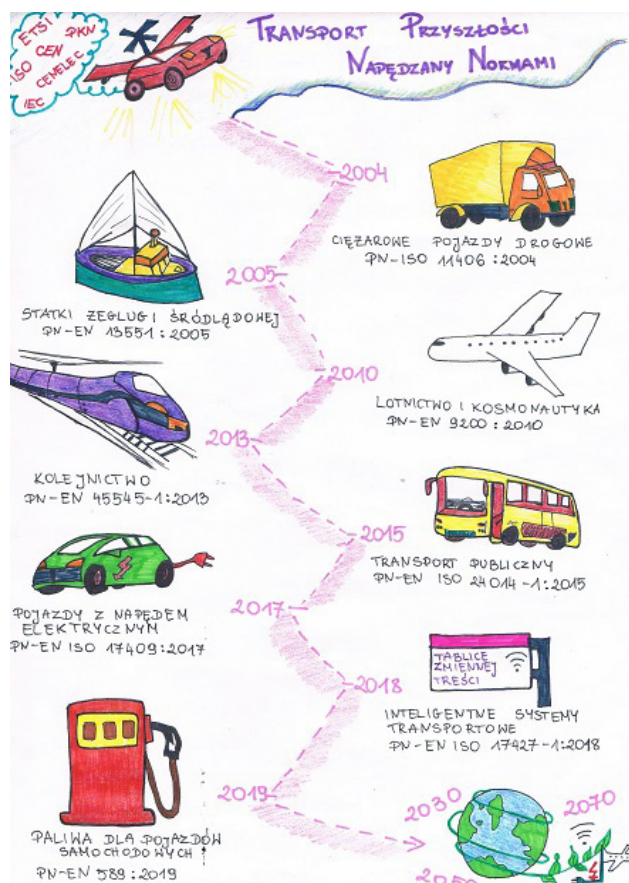 ETSI PKN
ISO CEN
CENELEC
IEC
TRANSPORT PRZYSZŁOŚCI
NAPĘDZANY NORMAMI
2004
CIĘŻAROWE POJAZDY DROGOWE
PN-ISO 11406:2004
2005
STATKI ŻEGLUGI ŚRÓDLĄDOWEJ
PN-EN 13551:2005
2010
LOTNICTWO I KOSMONAUTYKA
PN-EN 9200:2010
2013
KOLEJNICTWO
PN-EN 45545-1:2013
2015
TRANSPORT PUBLICZNY
PN-EN ISO 24014-1:2015
2017
POJAZDY Z NAPĘDEM
ELEKTRYCZNYM
PN-EN ISO 17409:2017
2018
TABLICE
ZMIENNEJ
TREŚCI
INTELIGENTNE SYSTEMY
TRANSPORTOWE
PN-EN ISO 17427-1:2018
2019
PALIWA DLA POJAZDÓW
SAMOCHODOWYCH
PN-EN 589:2019
2030
2070
2050